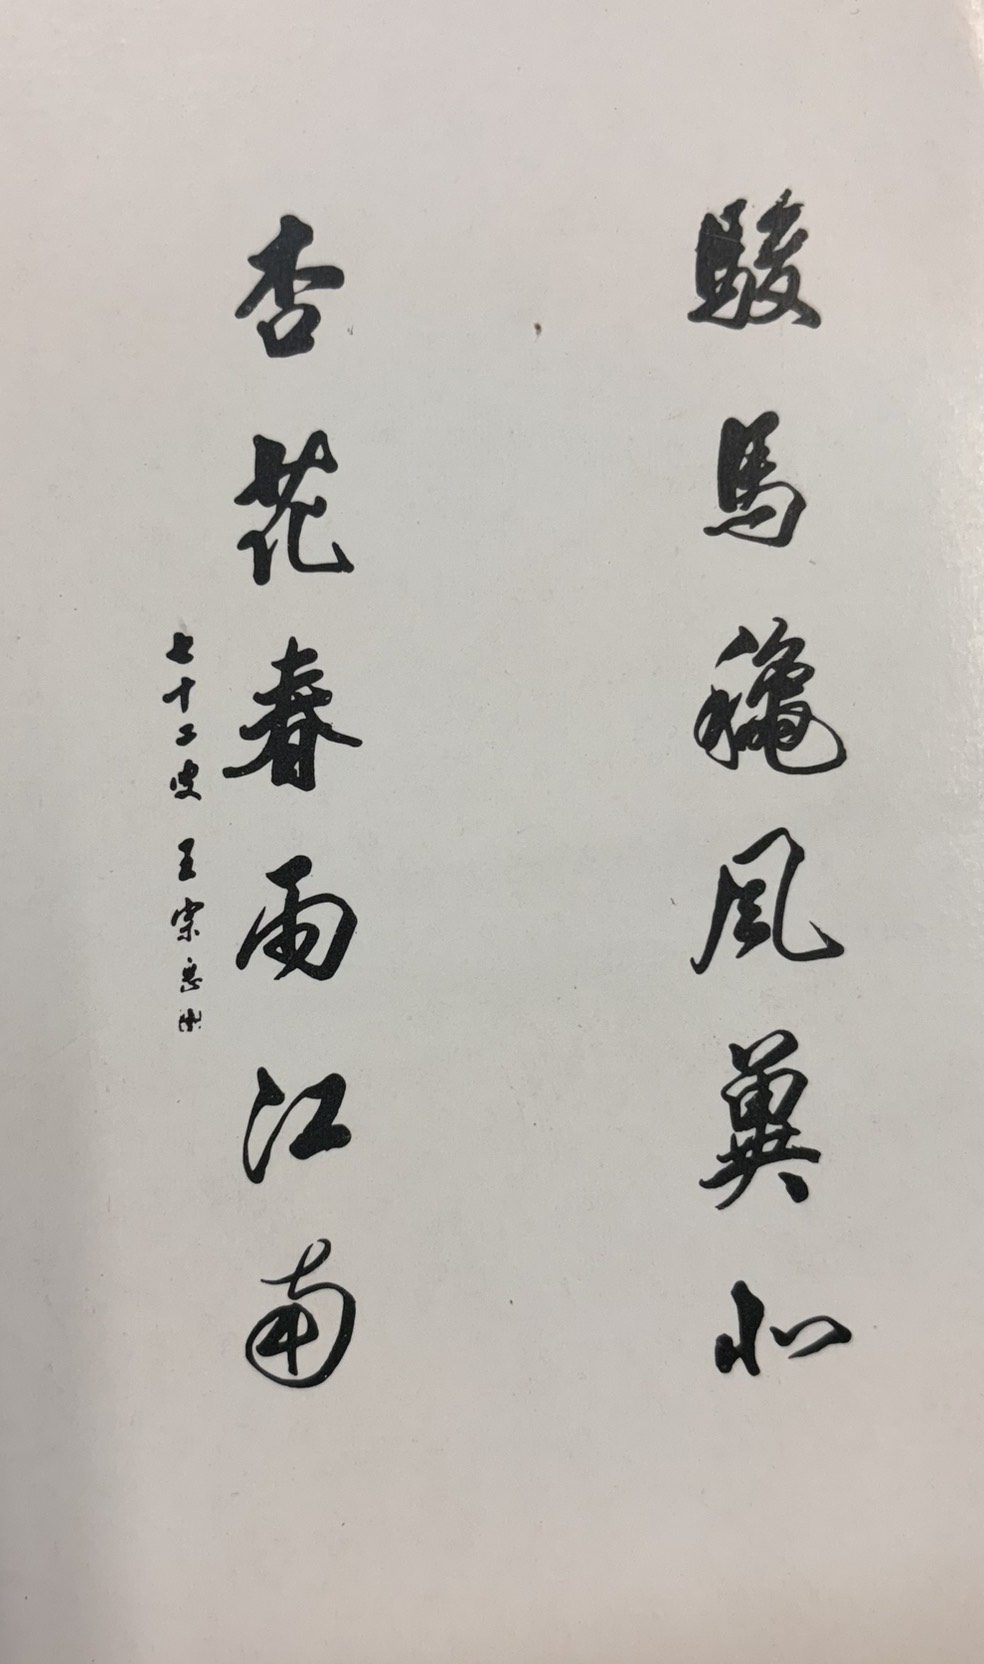 駿馬龝風冀北
杏花春雨江南
七十二叟 王宗岳